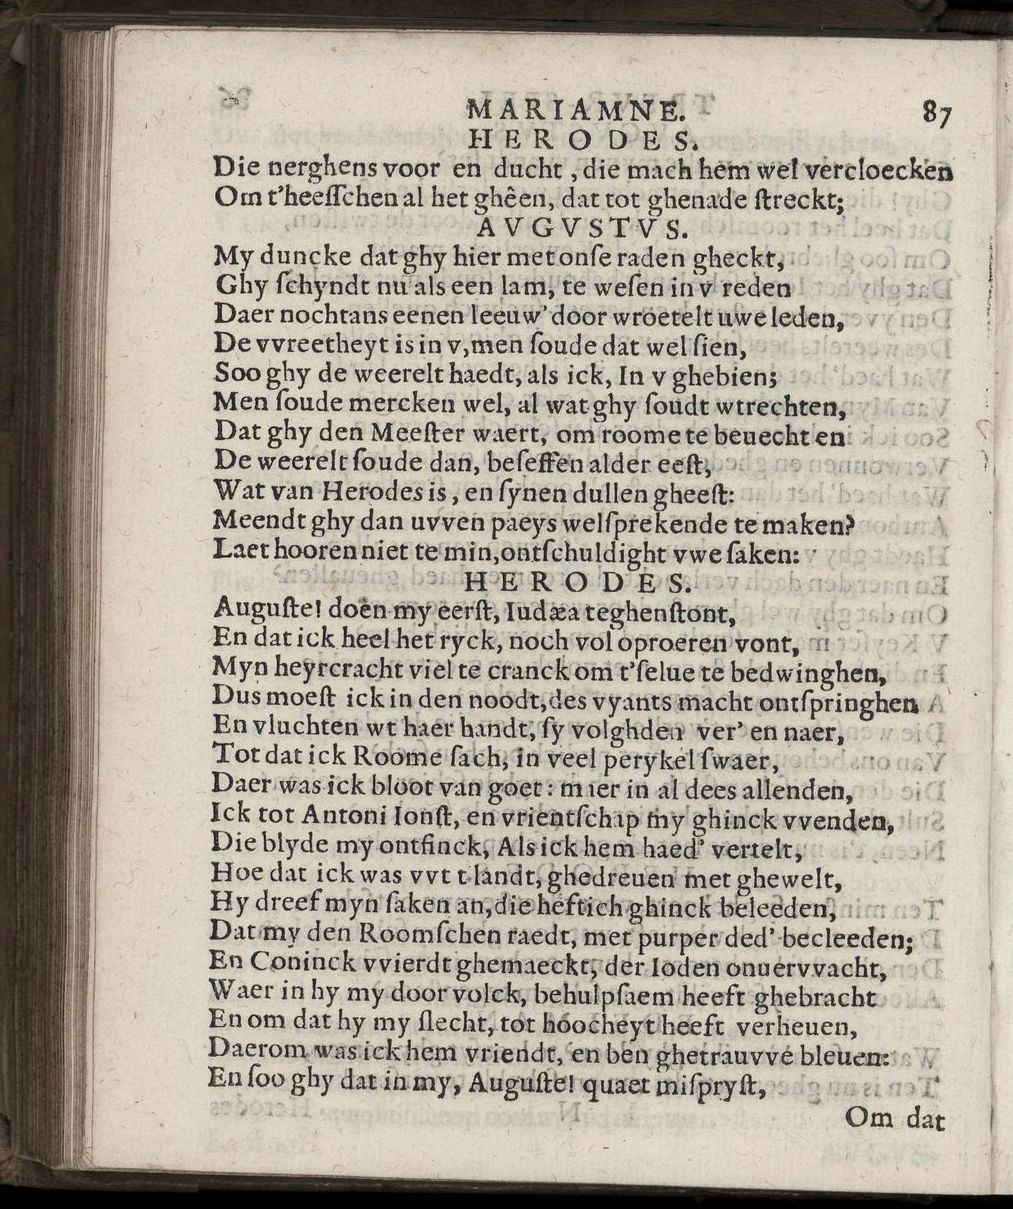 MARIAMNE. 87
HERODES.
Die nerghens voor en ducht, die mach hem wel vercloecken
Om t'heeſſchen al het ghêen, dat tot ghenade ſtreckt;
AVGVSTVS.
My duncke dat ghy hier met onſe raden gheckt,
Ghy ſchyndt nu als een lam, te weſen in v reden
Daer nochtans eenen leeuw' door wroetelt uwe leden,
De vvreetheyt is in v, men ſoude dat wel ſien,
Soo ghy de weerelt haedt, als ick, In v ghebien;
Men ſoude mercken wel, al wat ghy ſoudt wtrechten,
Dat ghy den Meeſter waert, om roome te beuechten
De weerelt ſoude dan, beſeffen alder eeſt,
Wat van Herodes is, en ſynen dullen gheeſt:
Meendt ghy dan uvven paeys welſprekende te maken?
Laet hooren niet te min, ontſchuldight vwe ſaken:
HERODES.
Auguſte! doen my eerſt, Iudæa teghenſtont,
En dat ick heel het ryck, noch vol oproeren vont,
Myn heyrcracht viel te cranck om t'ſelue te bedwinghen,
Dus moeſt ick in den noodt, des vyants macht ontſpringhen
En vluchten wt haer handt, ſy volghden ver' en naer,
Tot dat ick Roome ſach, in veel perykel ſwaer,
Daer was ick bloot van goet: mıer in al dees allenden,
Ick tot Antoni Ionſt, en vrientſchap my ghinck vvenden,
Die blyde my ontfinck, Als ick hem haed' vertelt,
Hoe dat ick was vvt t landt, ghedreuen met ghewelt,
Hy dreef myn ſaken an, die heftich ghinck beleeden,
Dat my den Roomſchen raedt, met purper ded' becleeden;
En Coninck vvierdt ghemaeckt, der Ioden onuervvacht,
Waer in hy my door volck, behulpſaem heeft ghebracht
En om dat hy my ſlecht, tot hoocheyt heeft verheuen,
Daerom was ick hem vriendt, en ben ghetrauvve bleuen:
En ſoo ghy dat in my, Auguſte! quaet miſpryſt,
Om dat